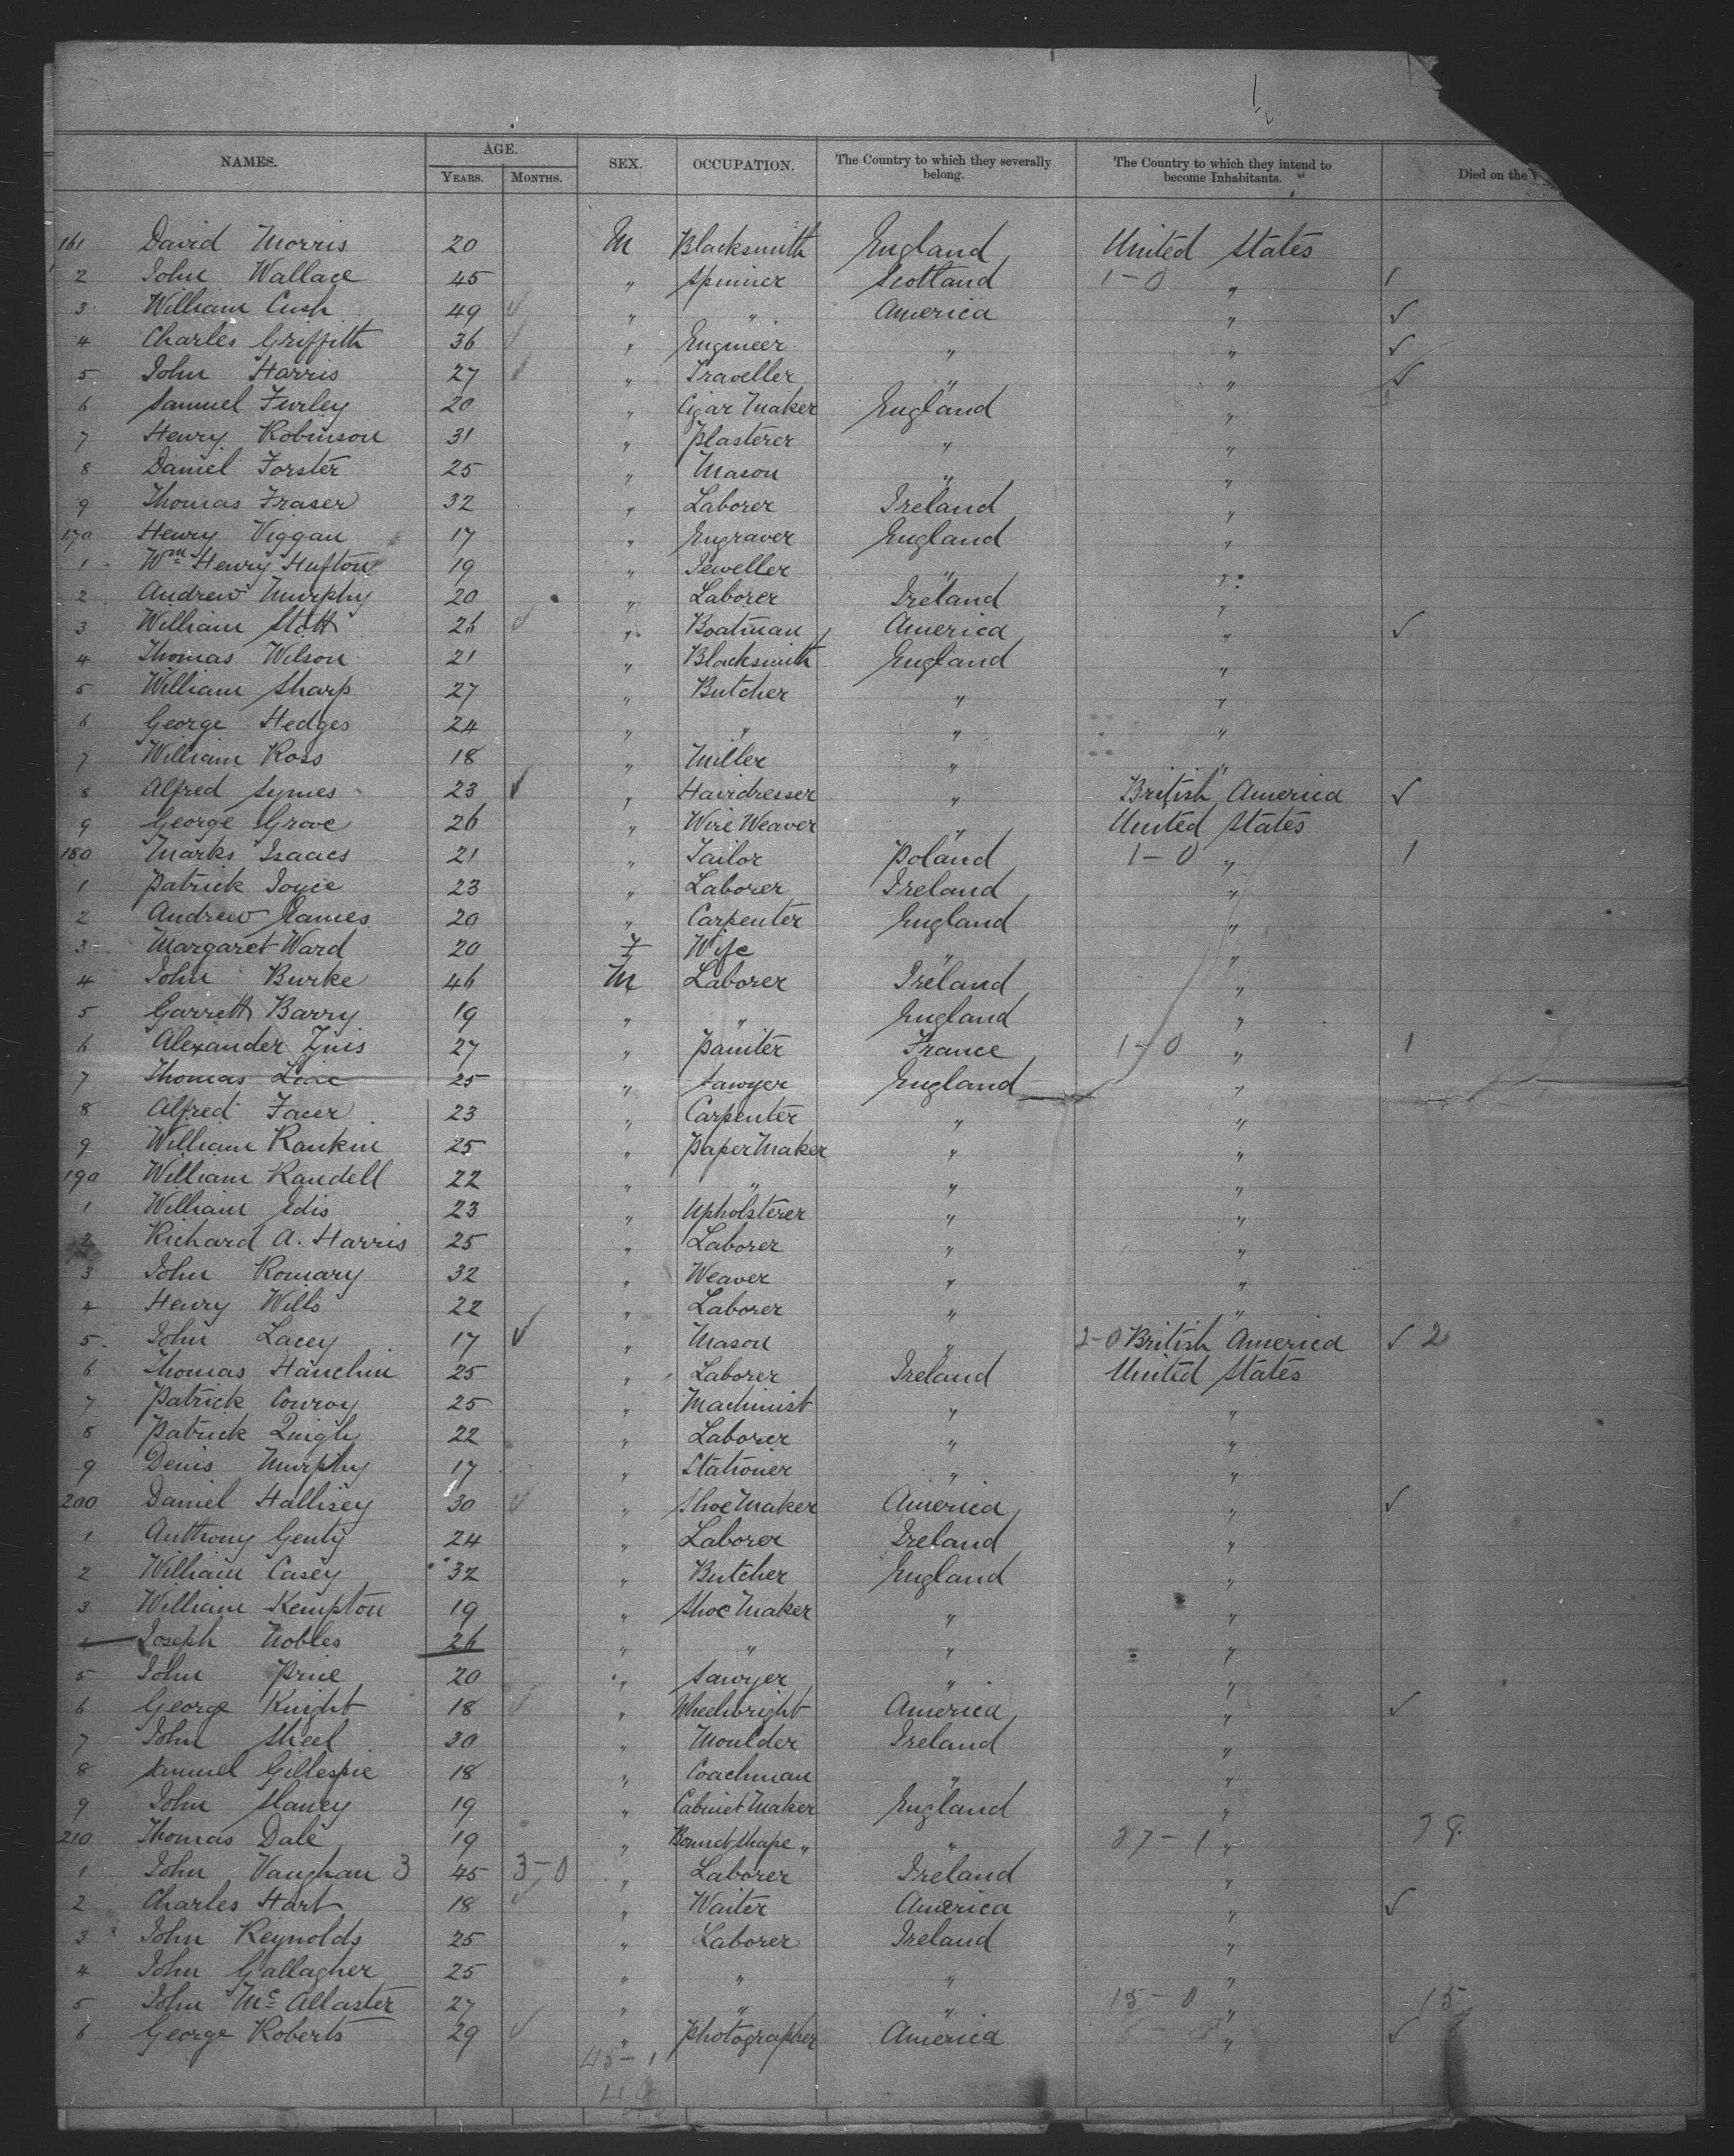 NAMES. AGE. SEX. OCCUPATION. The Country to which they severally belong. The Country to which they intend to become Inhabitants. Died on the
YEARS. MONTHS.
161 David Morris 20 M Blacksmith England United States
2 John Wallace 45 " Spinner Scotland 1-0 " 1
3 William Cush 49 ✓ " " America " ✓
4 Charles Griffith 36 ✓ " Engineer " " ✓
5 John Harris 27 ✓ " Traveller " " ✓
6 Samuel Furley 20 " Cigar Maker England "
7 Henry Robinson 31 " Plasterer " "
8 Daniel Forster 25 " Mason " "
9 Thomas Fraser 32 " Laborer Ireland "
170 Henry Viggan 17 " Engraver England "
1 Wm Henry Hufton 19 " Jeweller " "
2 Andrew Murphy 20 " Laborer Ireland "
3 William Stott 26 ✓ " Boatman America " ✓
4 Thomas Wilson 21 " Blacksmith England "
5 William Sharp 27 " Butcher " "
6 George Hedges 24 " " " "
7 William Ross 18 " Miller " "
8 Alfred Symes 23 ✓ " Hairdresser " British America ✓
9 George Grove 26 " Wire Weaver " United States
180 Marks Isaacs 21 " Tailor Poland 1-0 " 1
1 Patrick Joyce 23 " Laborer Ireland "
2 Andrew Eames 20 " Carpenter England "
3 Margaret Ward 20 F Wife " "
4 John Burke 46 M Laborer Ireland "
5 Garrett Barry 19 " " England "
6 Alexander 27 " Painter France 1-0 " 1
7 Thomas 25 " Sawyer England "
8 Alfred Facer 23 " Carpenter " "
9 William Rankin 25 " Paper Maker " "
190 William Randell 22 " " " "
1 William Edis 23 " Upholsterer " "
2 Richard A. Harris 25 " Laborer " "
3 John Romary 32 " Weaver " "
4 Henry Wills 22 " Laborer " "
5 John Lacey 17 ✓ " Mason " 2-0 British America ✓ 2
6 Thomas Hanchin 25 " Laborer Ireland United States
7 Patrick Conroy 25 " Machinist " "
8 Patrick Quigly 22 " Laborer " "
9 Denis Murphy 17 " Stationer " "
200 Daniel Hallisey 30 ✓ " Shoe Maker America " ✓
1 Anthony Genty 24 " Laborer Ireland "
2 William Casey 32 " Butcher England "
3 William Kempton 19 " Shoe Maker " "
4 Joseph Nobles 26 " " " "
5 John Prue 20 " Sawyer " "
6 George Knight 18 ✓ " Wheelwright America " ✓
7 John Sheel 30 " Moulder Ireland "
8 Samuel Gillespie 18 " Coachman " "
9 John Slaney 19 " Cabinet Maker England "
210 Thomas Dale 19 " Bonnet Shape " " 37-1 "
1 John Vaughan 3 45 3-0 " Laborer Ireland "
2 Charles Hart 18 ✓ " Waiter America " ✓
3 John Reynolds 25 " Laborer Ireland "
4 John Gallagher 25 " " " "
5 John Mc Allaster 27 " " " 15-0 " 15
6 George Roberts 29 ✓ " Photographer America " ✓